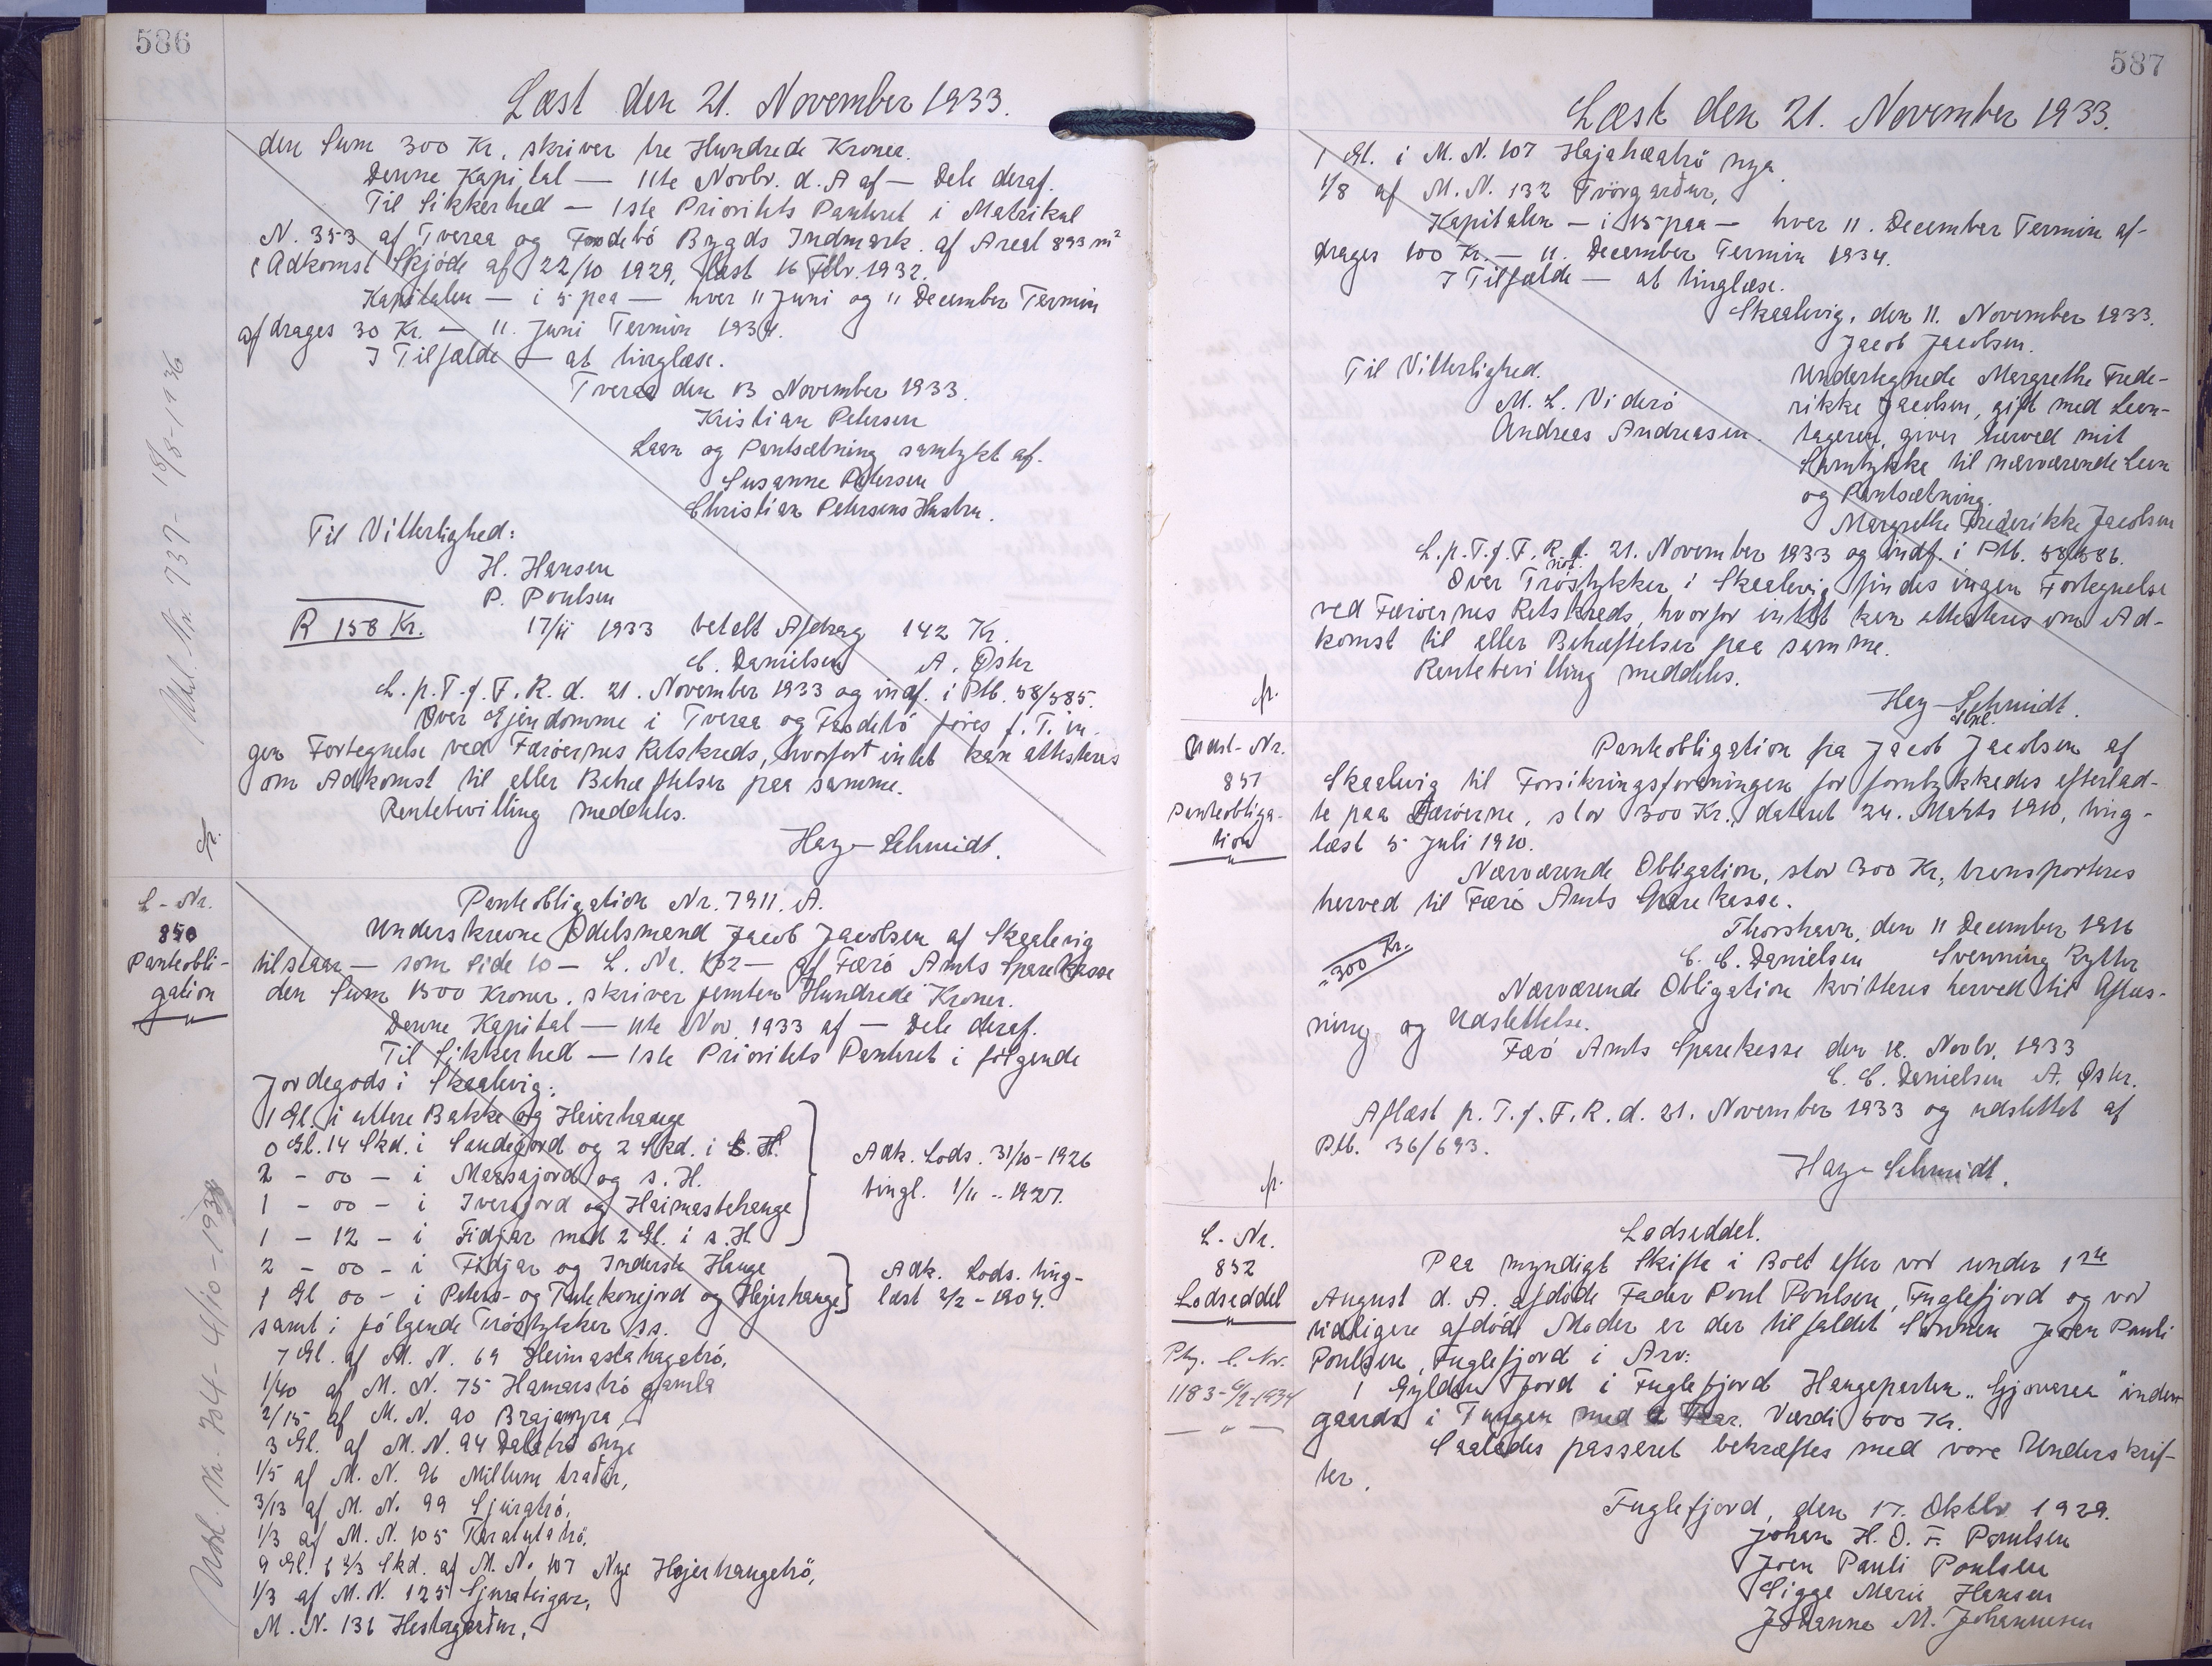 586
Læst den 21. November 1933.
den Sum 300 Kr. skriver tre Hundrede Kroner.
Denne Kapital — 11te Novbr. d. A af — Dele deraf.
Til Sikkerhed — 1ste Prioritets Panteret i Matrikul
N. 353 af Tveraa og Froodebö Bygds Indmark. af Areal 893 m²
( Adkomst Skjöde af 22/10 1929, læst 16 Febr. 1932.
Kapitalen — i 5 paa — hver 11 Juni og 11 December Termin
afdrages 30 Kr. — 11. Juni Termin 1934.
I Tilfælde — at tinglæse.
Tveraa den 13 November 1933.
Kristian Petersen
Laan og Pantsætning samtykt af.
Susanne Petersen
Christian Petersens Hustru.
Til Vitterlighed:
H. Hansen
P. Poulsen
R 158 Kr. 17/11 1933 betalt Afdrag 142 Kr.
C. Danielsen A. Öster
L. p. T. f. F. R. d. 21. November 1933 og indf. i Ptb. 58/585.
Over Ejendomme i Tveraa og Froodebö föres f. T. in-
gen Fortegnelse ved Færöernes Retskreds, hvorfort intet kan attesteres
om Adkomst til eller Behæftelser paa samme.
Rentebevilling meddeles.
Hay-Schmidt.
fr.
Udsl. Nr. 737 - 18/8-1936
L-Nr.
850
Panteobli-
gation
Panteobligation Nr. 7911. A.
Underskrevne Odelsmand Jacob Jacobsen af Skaalevig
tilstaar — som Side 10 — L. Nr. 102 — af Færö Amts Sparekasse
den Sum 1500 Kroner. skriver femten Hundrede Kroner.
Denne Kapital — 11te Nov. 1933 af — Dele deraf.
Til Sikkerhed — 1ste Prioritets Panteret i fölgende
Jordegods i Skaalevig:
1 Gl. i uttere Bakke og Heierhauge
0 Gl. 14 Skd. i Sandejord og 2 Skd. i s. H.
2 - 00 - i Marsajord og s. H.
1 - 00 - i Iversjord og Haimastehauge
1 - 12 - i Fidjar med 2 Gl. i s. H.
Adk. Lods. 31/10-1926
tingl. 1/11 - 1927.
2 - 00 - i Fidjar og Inderste Hauge
1 Gl 00 - i Peters- og Tulekonejord og Hejerhauge
Adk. Lods. ting-
læst 2/2 - 1904.
samt i fölgende Tröstykker ss.
7 Gl. af M. N. 69 Heimastahagatrö,
1/40 af M. N. 75 Hamarströ gamla
2/15 af M. N. 90 Brajamyra,
3 Gl. af M. N. 94 Dalatrö nye
1/5 af M. N. 96 Millum traðir,
3/13 af M. N. 99 Ljúratrö,
1/3 af M. N. 105
9 Gl. 6 2/3 Skd. af M. N. 107 Nye Hejerhaugetrö,
1/3 af M. N. 125 Ljurateigar,
M. N. 131 Hestagarður,
Udsl. Nr. 704 - 4/10 - 1938
587
Læst den 21. November 1933.
1 Gl. i M. N. 107 Hajaheatrö nya
1/8 af M. N. 132 Tvörgarður,
Kapitalen — i 15 paa — hver 11. December Termin af-
drages 100 Kr. — 11. December Termin 1934.
I Tilfælde — at tinglæse.
Skaalevig, den 11. November 1933.
Jacob Jacobsen.
Til Vitterlighed.
M. L. Viderö
Andreas Andreasen.
Undertegnede Margrethe Frede-
rikke Jacobsen, gift med Laan-
tageren, giver herved mit
Samtykke til nærværende Laan
og Pantsætning.
Margrethe Frederikke Jacobsen
L. p. T. f. F. R. d. 21. November 1933 og indf. i Ptb. 58/586.
not.
Over Tröstykker i Skaalevig findes ingen Fortegnelse
ved Færöernes Retskreds, hvorfor intet kan attesteres om Ad-
komst til eller Behæftelser paa samme.
Rentebevilling meddeles.
fr.
Hay-Schmidt.
Udsl-Nr.
851
Panteobliga-
tion
Panteobligation fra Jacob Jacobsen af
Skaalevig til Forsikringsforeningen for forulykkedes efterlad-
te paa Færöerne, stor 300 Kr., dateret 24. Marts 1910, ting-
læst 5 Juli 1910.
Nærværende Obligation, stor 300 Kr., transporteres
herved til Færö Amts Sparekasse.
Thorshavn, den 11 December 1916
C. C. Danielsen Svenning Rytter
"300 Kr.
Nærværende Obligation kvitteres herved til Aflæs-
ning og Udslettelse.
Færö Amts Sparekasse den 18. Novbr. 1933
C. C. Danielsen A. Öster.
Aflæst p. T. f. F. R. d. 21. November 1933 og udslettet af
Ptb. 36/693.
Hay-Schmidt.
fr.
L-Nr.
852
Lodseddel
Ptg. L. Nr.
1183-6/9-1934
Lodseddel.
Paa myndigt Skifte i Boet efter vor under 1ste
August d. A. afdöde Fader Poul Poulsen, Fuglefjord og vor
tidligere afdöde Moder er der tilfaldet Sönnen Joen Pauli
Poulsen, Fuglefjord i Arv:
1 Gylden Jord i Fuglefjord Haugeparten „Gjovaraa" inden-
gaards i Tungen med Faar. Værdi 600 Kr.
Saaledes passeret bekræftes med vore Underskrif-
ter.
Fuglefjord, den 17. Oktbr 1929.
Johan H. O. F. Poulsen
Joen Pauli Poulsen
Sigga Marie Hansen
Johanna M. Johannesen